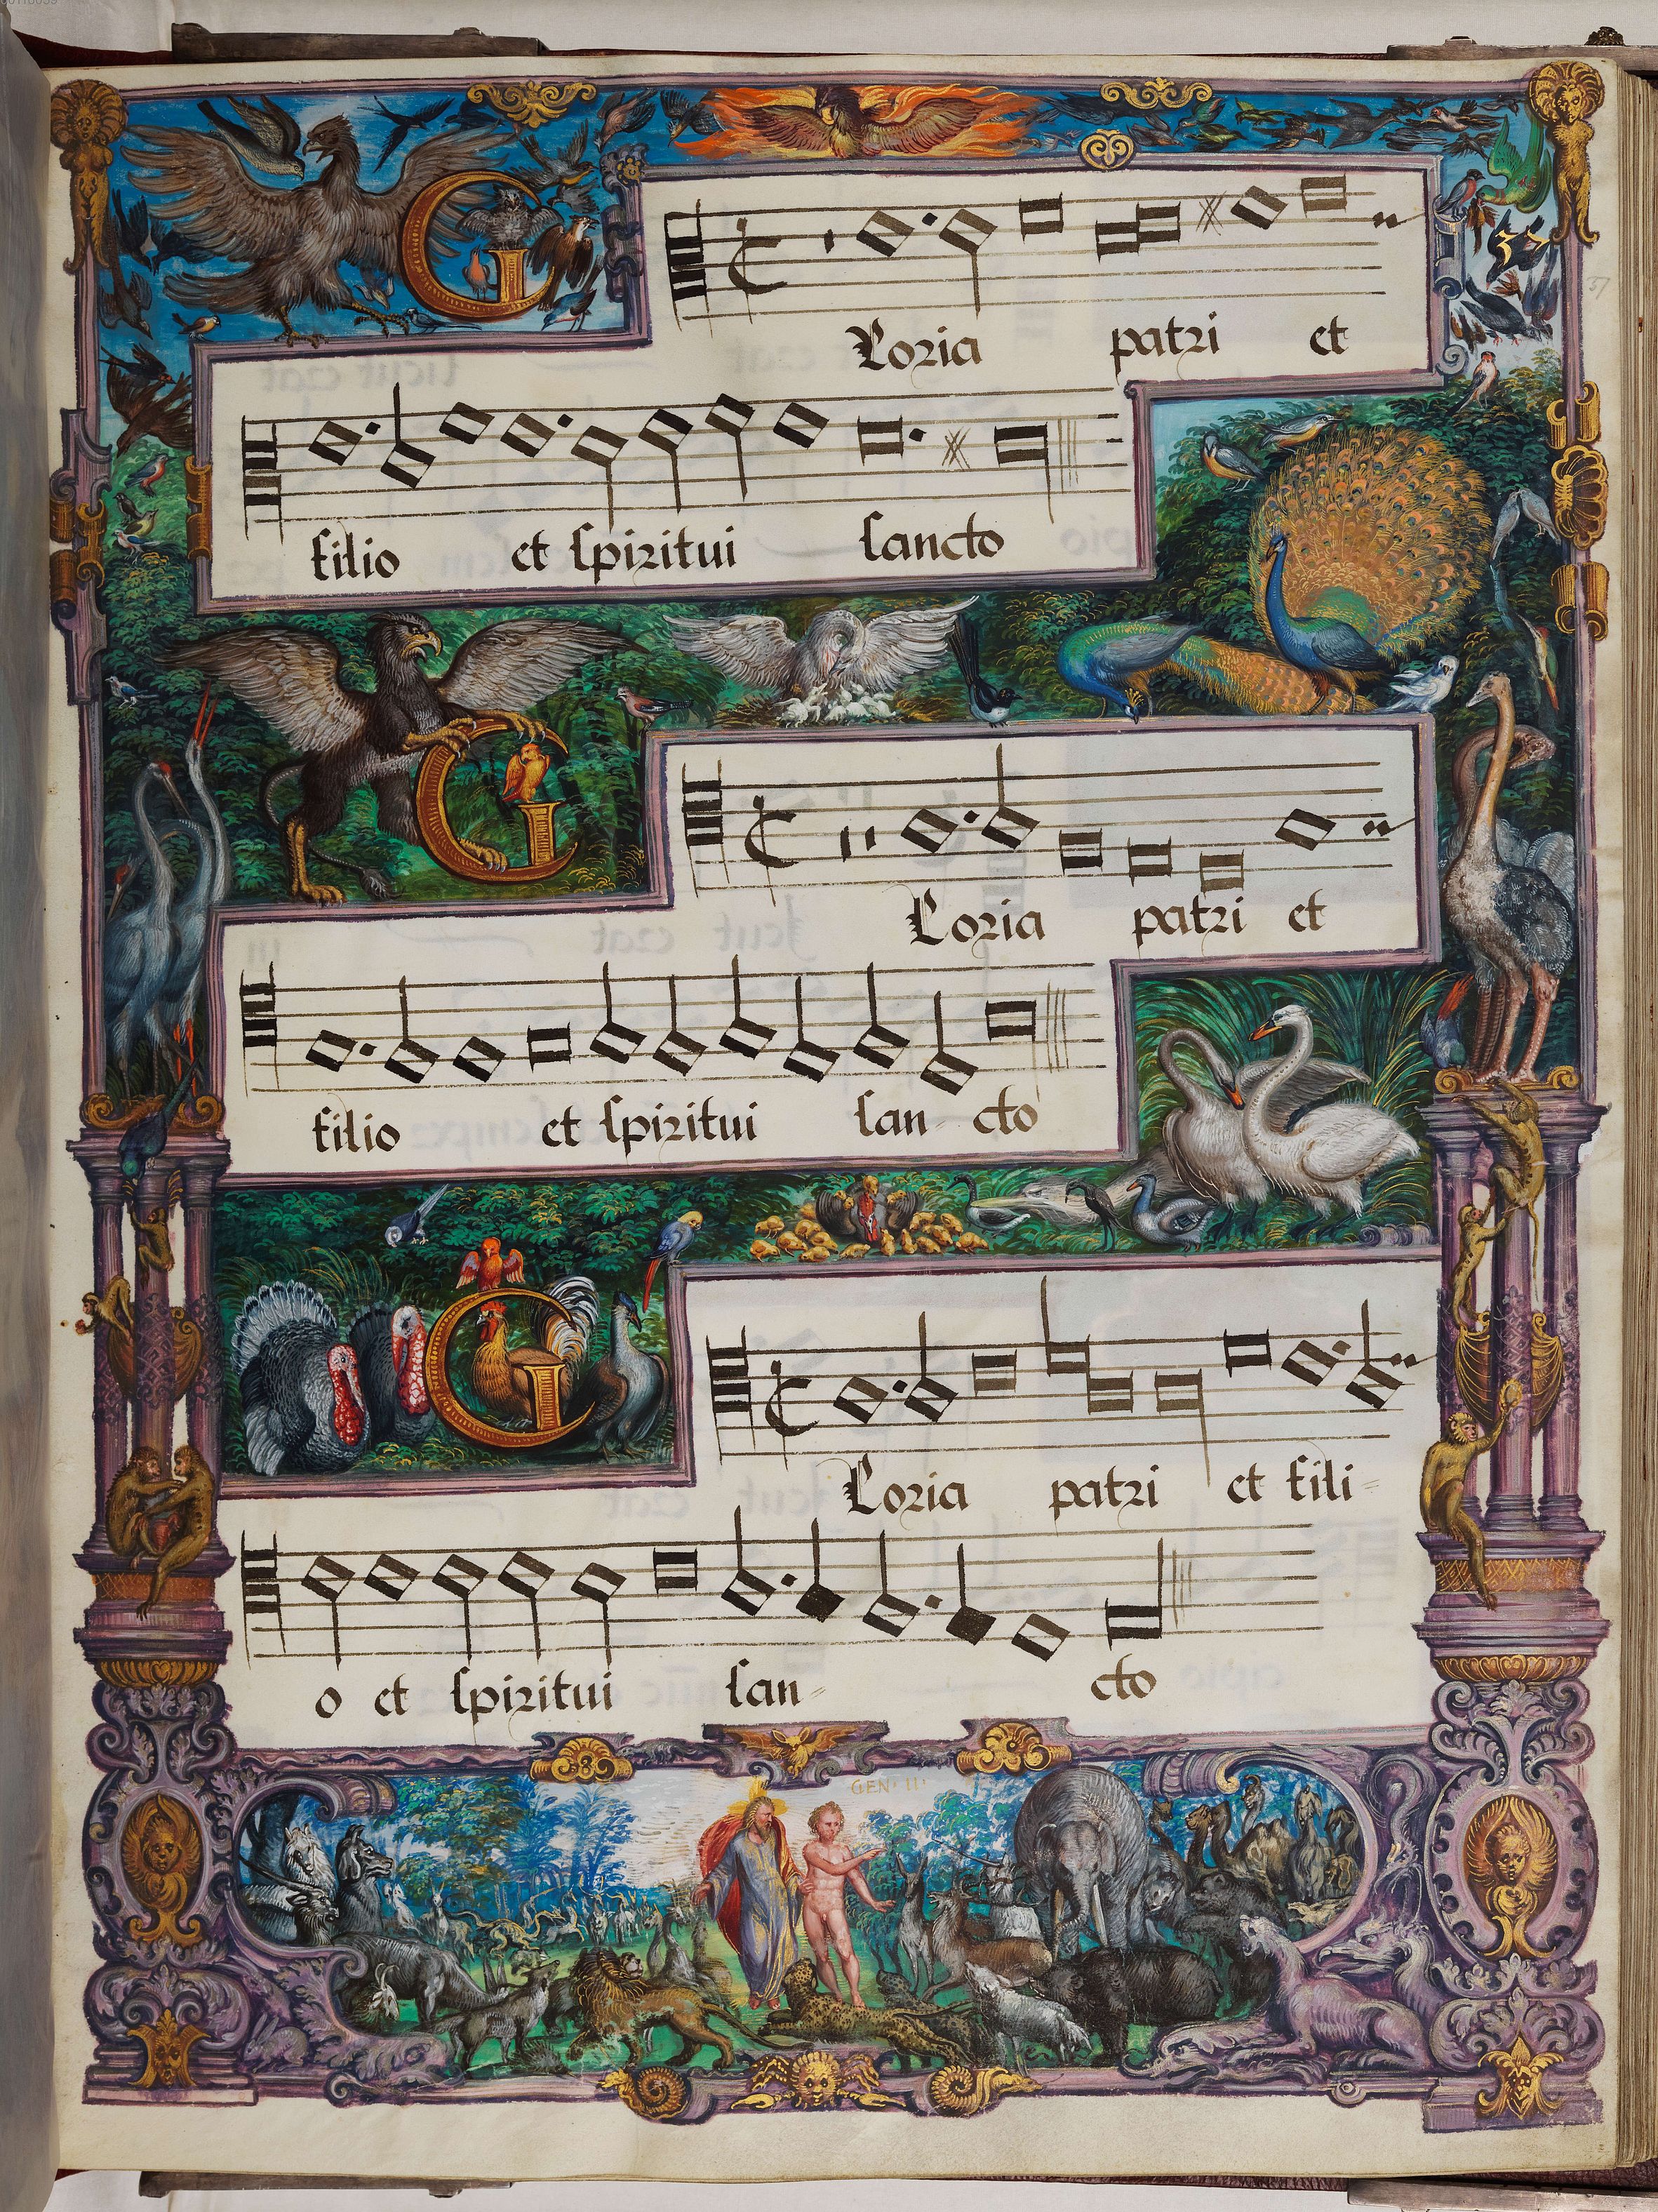 Gloria patri et
filio et spiritui sancto
Gloria patri et
filio et spiritui san- cto
Gloria patri et fili-
o et spiritui san- cto
GEN: III